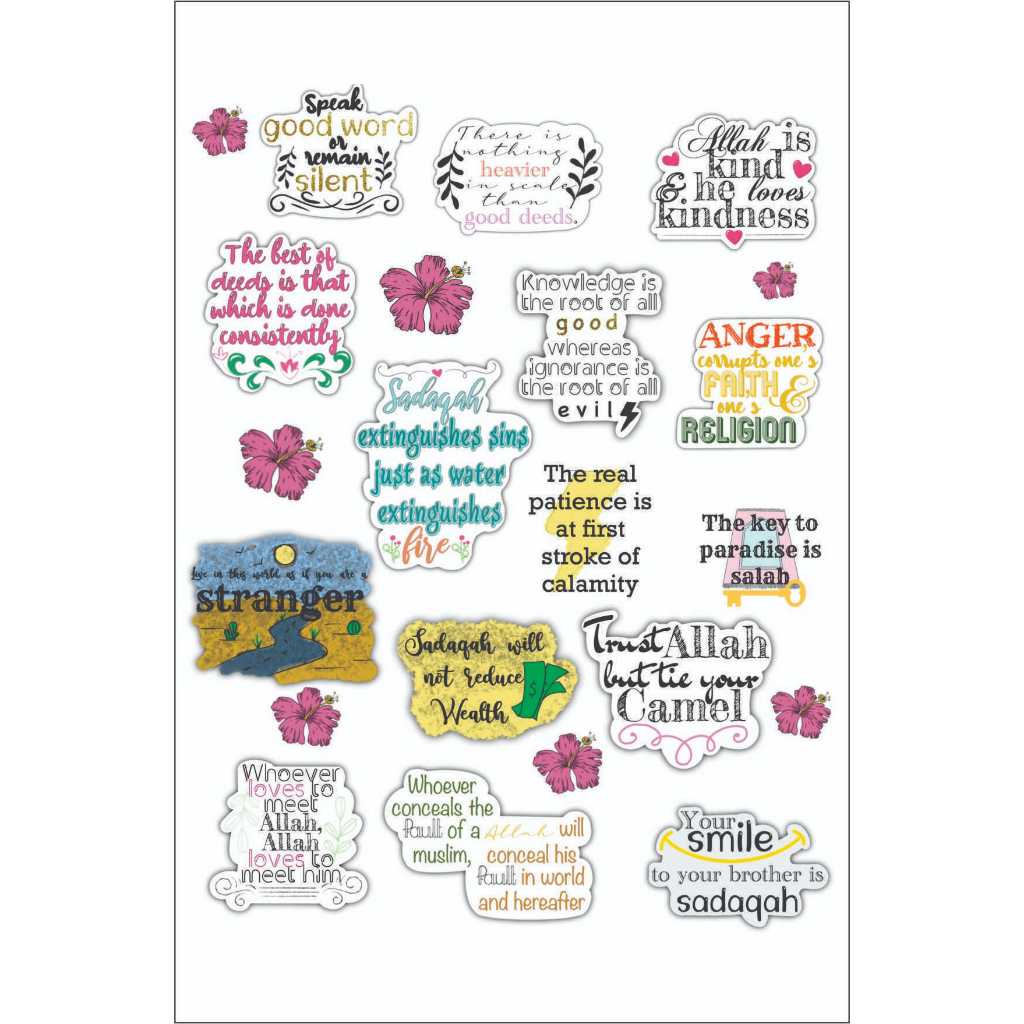 Speak
good word
or
remain
silent
There is
nothing
heavier
in scale
than
good deeds.
Allah is
kind
& he loves
kindness
The best of
deeds is that
which is done
consistently
Knowledge is
the root of all
good
whereas
ignorance is
the root of all
evil
ANGER,
corrupts one's
FAITH &
one's
RELIGION
Sadaqah
extinguishes sins
just as water
extinguishes
fire
The real
patience is
at first
stroke of
calamity
The key to
paradise is
salah
live in this world as if you are a
stranger
Sadaqah will
not reduce
Wealth
$
Trust Allah
but tie your
Camel
Whoever
loves to
meet
Allah,
Allah
loves to
meet him
Whoever
conceals the
fault of a
muslim,
Allah will
conceal his
fault in world
and hereafter
Your
smile
to your brother is
sadaqah